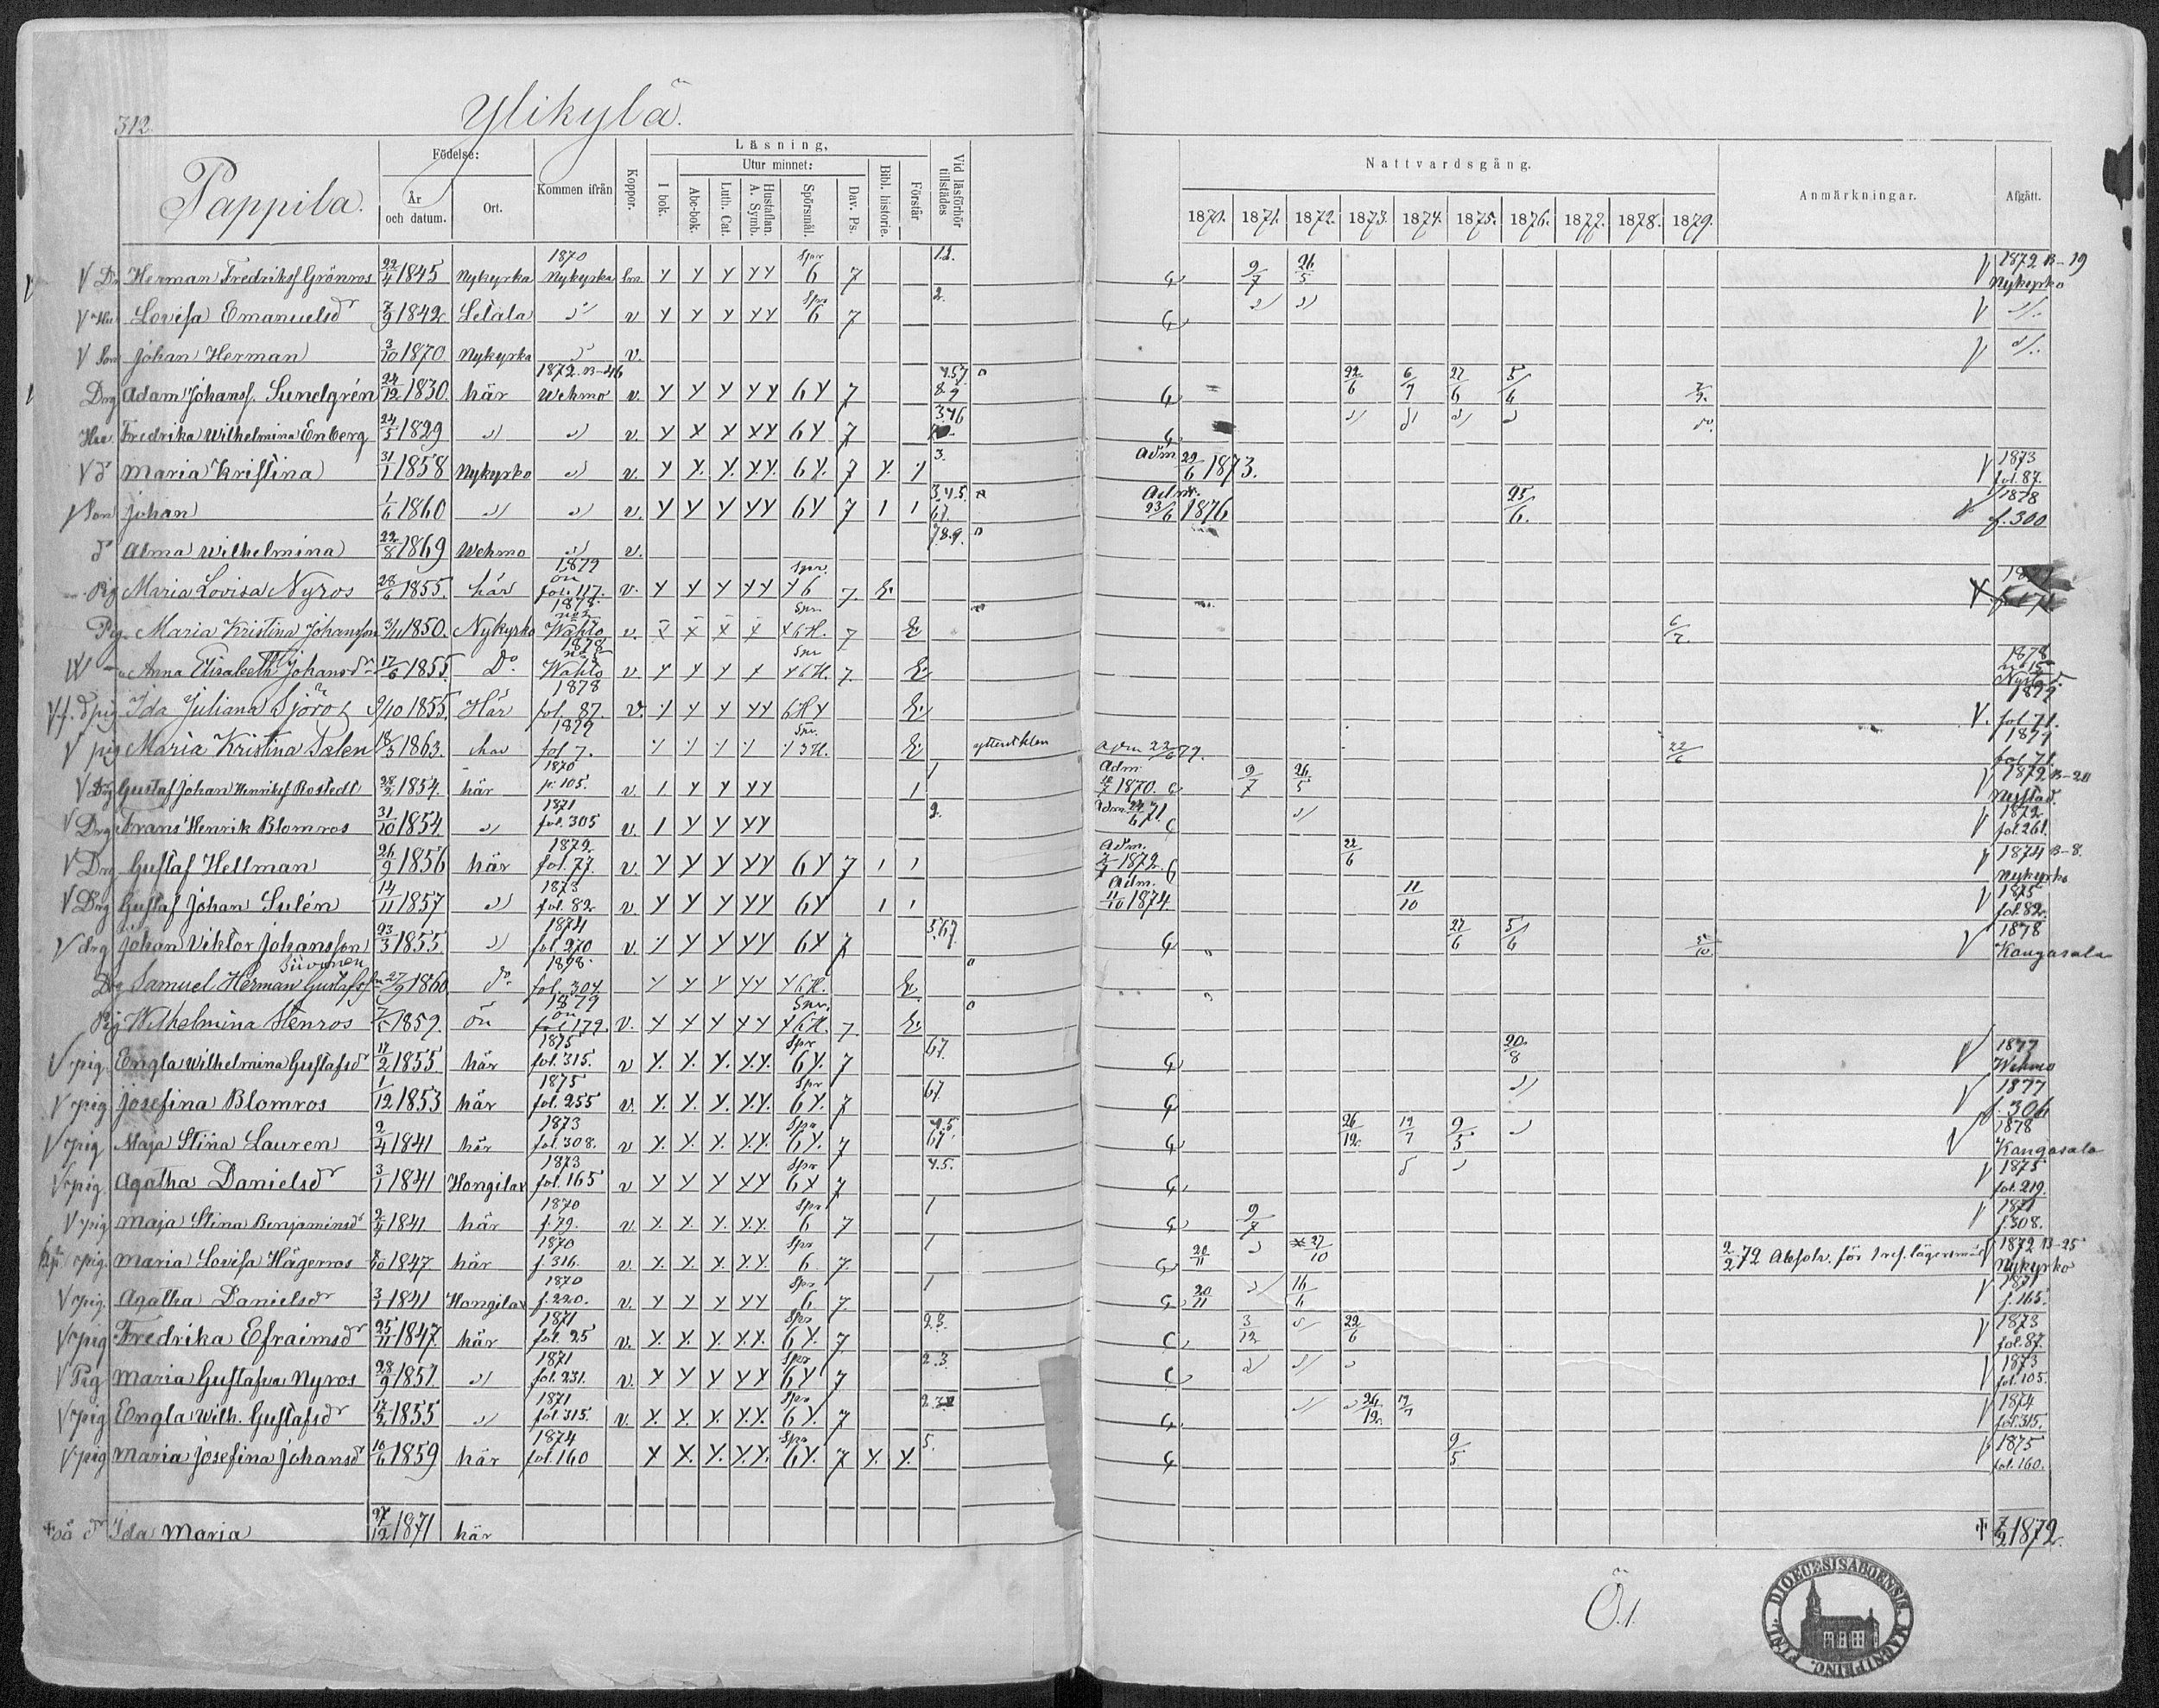 312.
Ylikylä.
Pappila.
Födelse:
År och datum.
Ort.
Kommen ifrån
Koppor.
Läsning,
I bok.
Utur minnet:
Abc-bok.
Luth. Cat.
Hustaflan. A. Symb.
Spörsmål.
Dav. Ps.
Bibl. historie.
Förstår
Vid läsförhör tillstädes
Nattvardsgång.
1870. 1871. 1872. 1873. 1874. 1875. 1876. 1877. 1878. 1879.
Anmärkningar.
Afgått.
Herman Fredriksf Grönros 22/4 1845 Nykyrka 1870 Nykyrka Y Y Y YY Spr 6 7 12. 9/7 26/5 1872 B-19 Nykyrko
Lovisa Emanuelsdr 7/9 1842 Letala v Y Y Y YY Spr 6 7 2.
Son Johan Herman 3/10 1870 Nykyrka v.
Drg Adam Johansf. Sundgrén 24/12 1830 här 1872. B-46 Wehmo v. Y Y Y YY 6Y 7 22/6 6/7 27/6 5/6
Fredrika Wilhelmina Enberg 24/5 1829 v. Y Y Y YY 6Y 7
d Maria Kristina 31/1 1858 Nykyrko v. Y Y. Y. Y.Y. 6Y. 7 Y. 3. Adm 22/6 1873. 1873 fol. 87.
Son Johan 1/6 1860 v. Y Y Y YY 6Y 7 1 1 3.4.5. 67. Adm. 23/6 1876 25/6. 1878 f. 300
d Alma Wilhelmina 22/8 1869 Wehmo v. 7.8.9.
Pig Maria Lovisa Nyros 28/6 1855. här 1879 fol. 117. v. Y Y Y YY Spr. Y6 7.
Pig Maria Kristina Johansson 3/11 1850. Nykyrko 1878 Wahto v. Spr. Y6H. 7 6/7
Anna Elisabeth Johansdr 17/6 1855. Do. 1878 Wahto v Y Y Y Y Spr Y6H. 7. 1878 no 15 Nystad.
pig Ida Juliana Sjöros 9/10 1855. Här 1878 fol. 87. v. Y Y YY 6HY 1879 fol 71.
pig Maria Kristina Salen 18/3 1863. här 1879 fol 7. Spr. 3H. adm 22/6 79. 22/6 1879 fol 71.
Drg Gustaf Johan Henriksf Rostedt 28/2 1854. här 1870 p. 105. v. 1 Y Y YY 1 1 Adm. 1870. 9/7 26/5 1872 B-20 Nystad.
Drg Frans Henrik Blomros 31/10 1854. 1871 fol. 305 v. 1 Y Y YY 2. 1872 fol. 261.
Drg Gustaf Hellman 26/9 1856 här 1872 fol. 77. v. Y Y Y YY 6Y 7 1 1 Adm. 1872. 22/6 1874 B-8. Nykyrko
Drg Gustaf Johan Sulén 14/11 1857 1873 fol. 82. v. Y Y Y YY 6Y 1 1 Adm. 11/10 1874. 11/10 1875 fol. 82.
drg Johan Viktor Johansson 23/3 1855. 1874 fol. 270 v. Y Y Y YY 6Y 7 5.67. 27/6 5/6 5/10. 1878 Kangasala
Siivonen
Drg Samuel Herman Gustafsson 27/9 1860 do. 1878. fol. 304 Y Y YY Y6H.
Pig Wilhelmina Stenros 1859. 1879 fol 179. v. Y Y Y YY Spr. Y6H. 7.
pig. Engla Wilhelmina Gustafsdr 17/2 1855. här 1875 fol. 315. v Y. Y. Y. Y.Y. Spr 6Y. 7 67. 20/8 1877 Wehmo
pig Josefina Blomros 1/12 1853 här 1875 fol. 255 v. Y. Y. Y. Y.Y. Spr 6Y. 7 67. 1877 f. 306
pig Maja Stina Lauren 2/4 1841 här 1873 fol. 308. v Y. Y. Y. Y.Y. Spr 6Y. 7 4.5. 67. 26/12. 19/7 9/5 1878 Kangasala
pig. Agatha Danielsdr 3/1 1841 Hongilax 1873 fol. 165 v Y Y Y YY Spr 6Y 7 4.5. 1875 fol. 219.
pig Maja Stina Benjaminsdr 2/4 1841 här 1870 f. 79. v. Y. Y. Y. Y.Y. Spr 6 7 1 9/7 1871 f. 308.
pig. Maria Lovisa Hägerros 8/10 1847 här 1870 f. 316. v. Y. Y. Y. Y.Y. Spr 6 7. 1 20/11 27/10 2/2 72 Absolv. för 1 res. lägersmål 1872 B-25 Nykyrko
pig. Agatha Danielsdr 3/1 1841 Hongilax 1870 f. 220. v. Y Y Y YY Spr 6 7 1 20/11 16/6 1871 f. 165.
pig Fredrika Efraimsdr 25/11 1847. här 1871 fol. 25 v. Y. Y. Y. Y.Y. Spr 6Y. 7. 2.3. 3/12 22/6 1873 fol. 87.
Pig Maria Gustafva Nyros 28/9 1851. 1871 fol. 231. v. Y Y Y YY Spr 6Y 7 2.3. 1873 fol. 105.
pig Engla Wilh. Gustafsdr 17/2 1855 1871 fol. 315. v. Y. Y. Y. Y.Y. Spr 6Y. 7 26/12. 19/7 1874 fol. 315.
pig Maria Josefina Johansd 10/6 1859 här 1874 fol. 160 Y Y. Y. Y.Y. Spr 6Y. 7 Y. Y. 5. 9/5 1875 fol. 160.
oä dr Ida Maria 27/12 1871 här † 7/2 1872.
Ö.1.
DIOECESIS ABOENSIS. MAGNI PRINC. FINL.